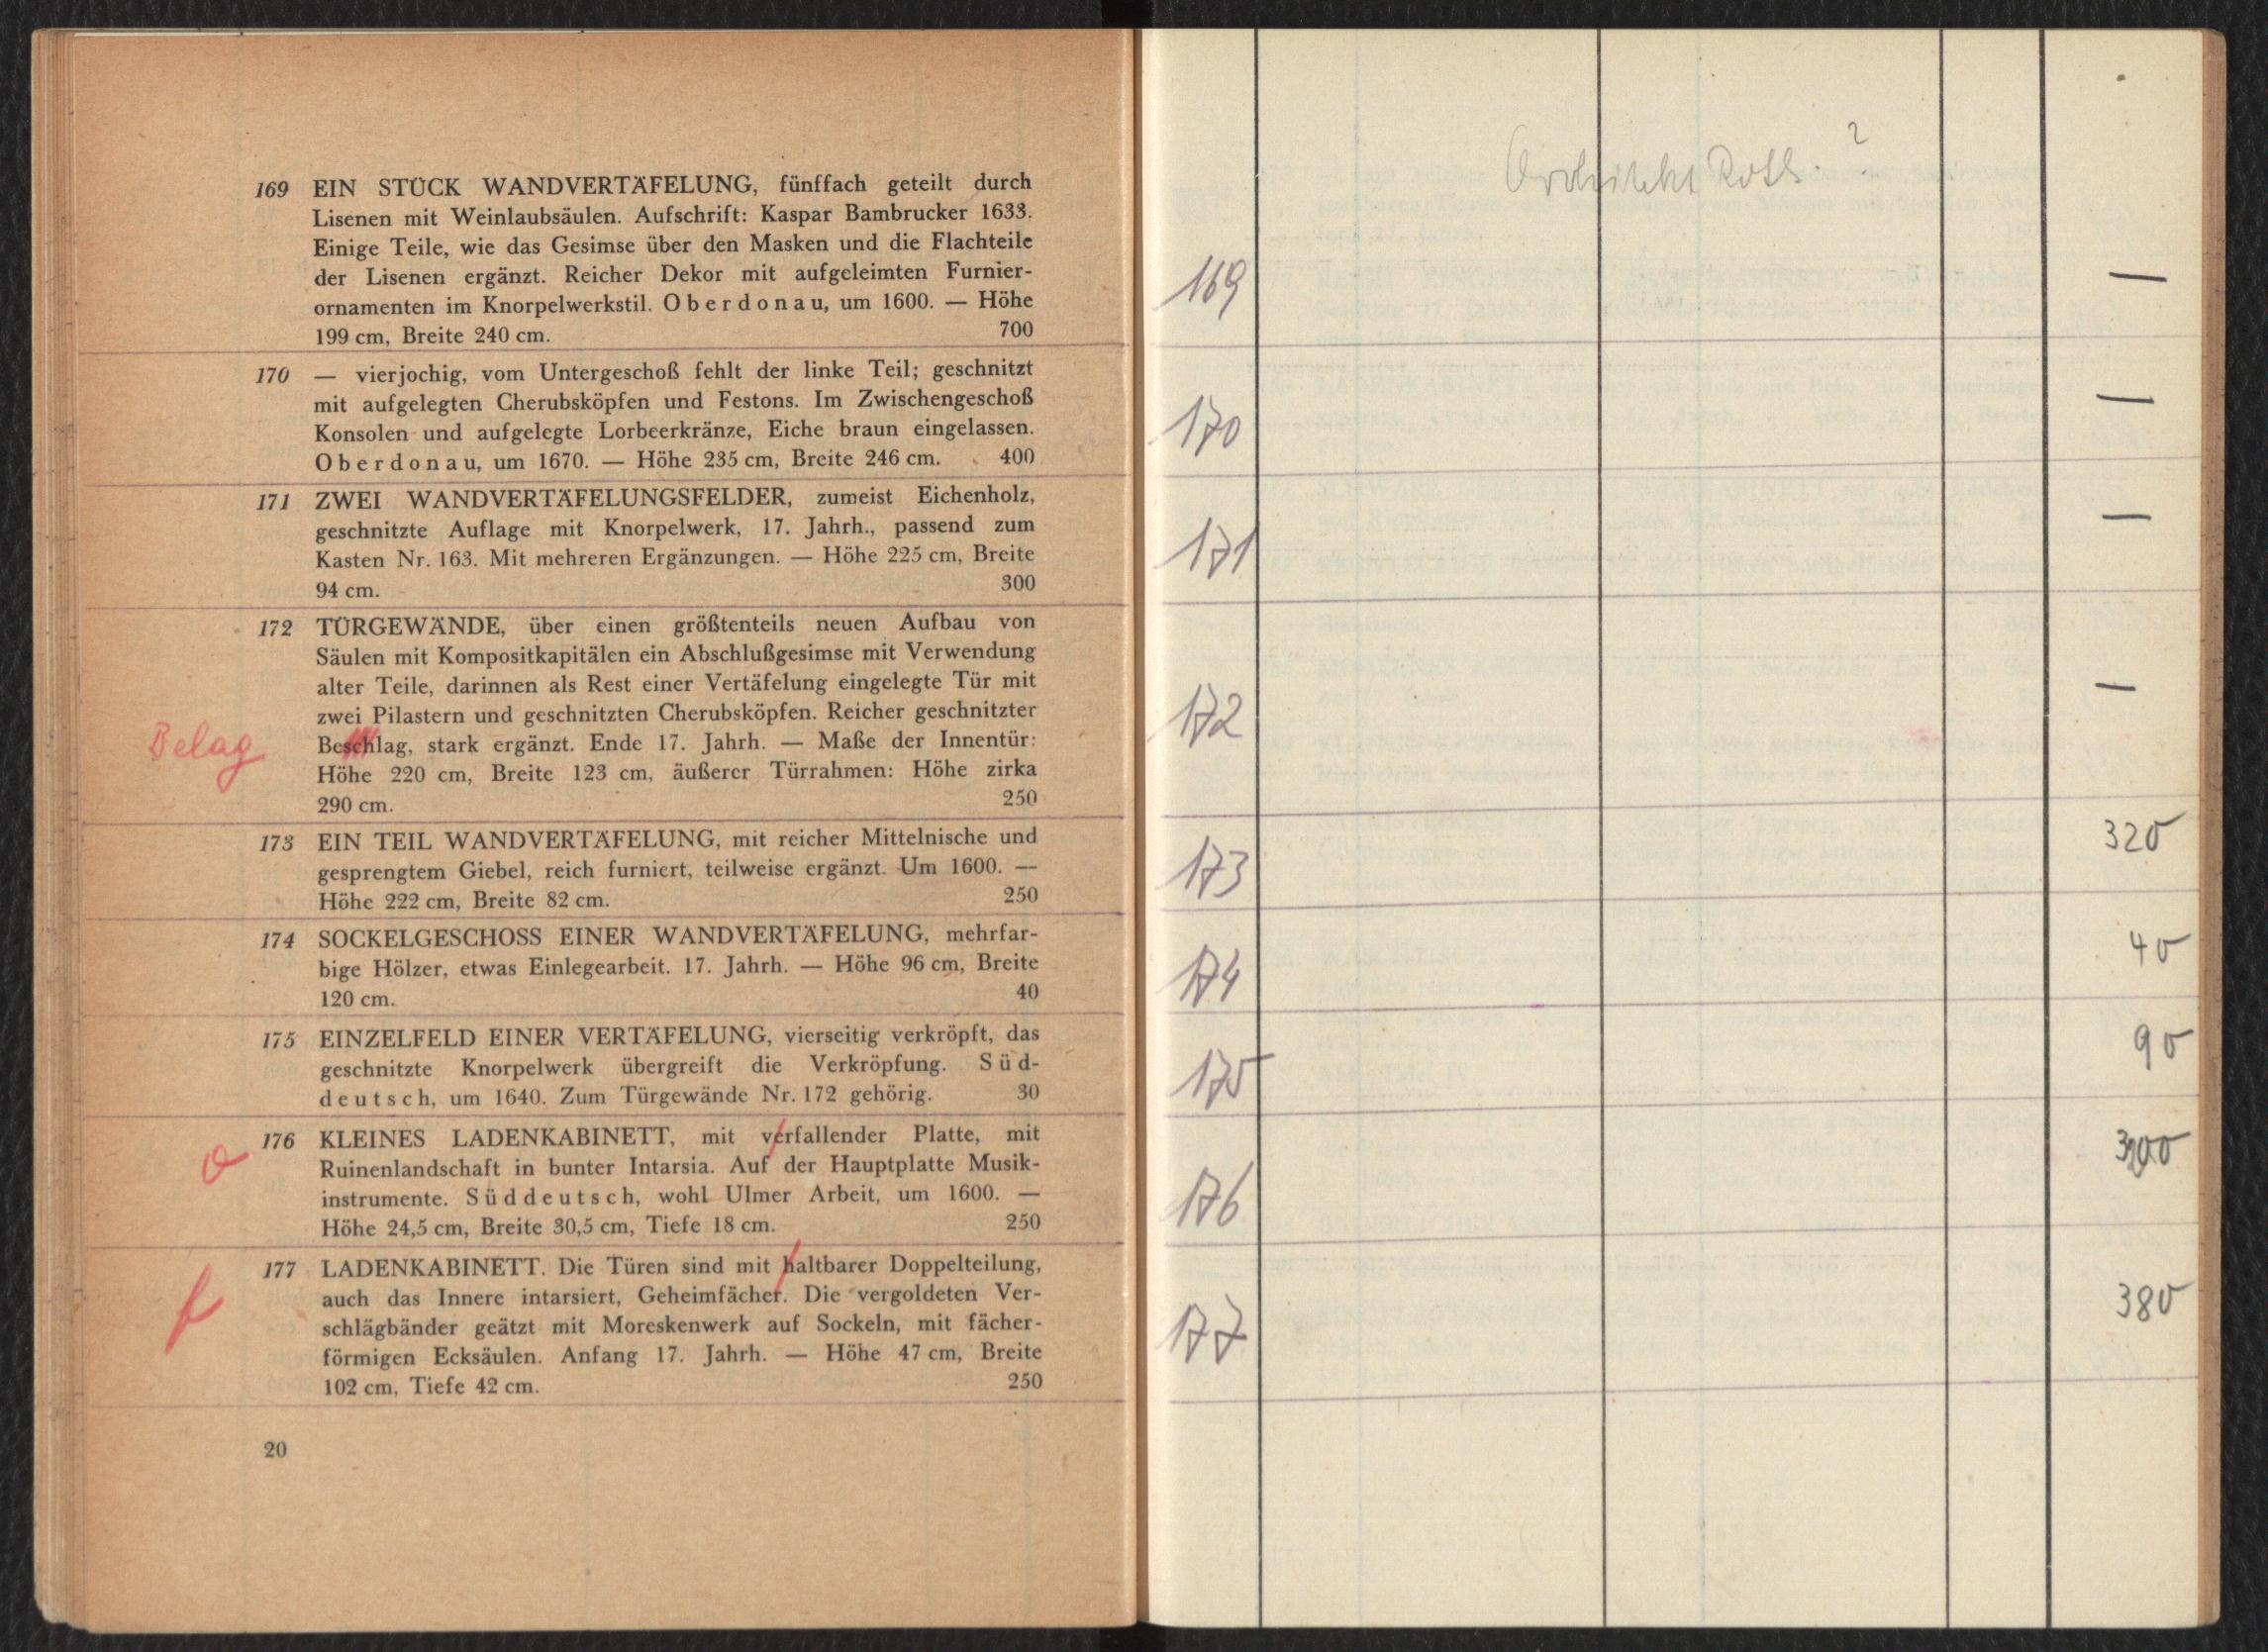 169 EIN STÜCK WANDVERTÄFELUNG, fünffach geteilt durch
Lisenen mit Weinlaubsäulen. Aufschrift: Kaspar Bambrucker 1633.
Einige Teile, wie das Gesimse über den Masken und die Flachteile
der Lisenen ergänzt. Reicher Dekor mit aufgeleimten Furnier-
ornamenten im Knorpelwerkstil. Oberdonau, um 1600. — Höhe
199 cm, Breite 240 cm. 700
170 — vierjochig, vom Untergeschoß fehlt der linke Teil; geschnitzt
mit aufgelegten Cherubsköpfen und Festons. Im Zwischengeschoß
Konsolen und aufgelegte Lorbeerkränze, Eiche braun eingelassen.
Oberdonau, um 1670. — Höhe 235 cm, Breite 246 cm. 400
171 ZWEI WANDVERTÄFELUNGSFELDER, zumeist Eichenholz,
geschnitzte Auflage mit Knorpelwerk, 17. Jahrh., passend zum
Kasten Nr. 163. Mit mehreren Ergänzungen. — Höhe 225 cm, Breite
94 cm. 300
172 TÜRGEWÄNDE, über einen größtenteils neuen Aufbau von
Säulen mit Kompositkapitälen ein Abschlußgesimse mit Verwendung
alter Teile, darinnen als Rest einer Vertäfelung eingelegte Tür mit
zwei Pilastern und geschnitzten Cherubsköpfen. Reicher geschnitzter
Belag
Beschlag, stark ergänzt. Ende 17. Jahrh. — Maße der Innentür:
Höhe 220 cm, Breite 123 cm, äußerer Türrahmen: Höhe zirka
290 cm. 250
173 EIN TEIL WANDVERTÄFELUNG, mit reicher Mittelnische und
gesprengtem Giebel, reich furniert, teilweise ergänzt. Um 1600. —
Höhe 222 cm, Breite 82 cm. 250
174 SOCKELGESCHOSS EINER WANDVERTÄFELUNG, mehrfar-
bige Hölzer, etwas Einlegearbeit. 17. Jahrh. — Höhe 96 cm, Breite
120 cm. 40
175 EINZELFELD EINER VERTÄFELUNG, vierseitig verkröpft, das
geschnitzte Knorpelwerk übergreift die Verkröpfung. Süd-
deutsch, um 1640. Zum Türgewände Nr. 172 gehörig. 30
o
176 KLEINES LADENKABINETT, mit verfallender Platte, mit
Ruinenlandschaft in bunter Intarsia. Auf der Hauptplatte Musik-
instrumente. Süddeutsch, wohl Ulmer Arbeit, um 1600. —
Höhe 24,5 cm, Breite 30,5 cm, Tiefe 18 cm. 250
f
177 LADENKABINETT. Die Türen sind mit haltbarer Doppelteilung,
auch das Innere intarsiert, Geheimfächer. Die vergoldeten Ver-
schlägbänder geätzt mit Moreskenwerk auf Sockeln, mit fächer-
förmigen Ecksäulen. Anfang 17. Jahrh. — Höhe 47 cm, Breite
102 cm, Tiefe 42 cm. 250
20
Architekt Roth. ?
169 —
170 —
171 —
172 —
173 320
174 40
175 90
176
177 380